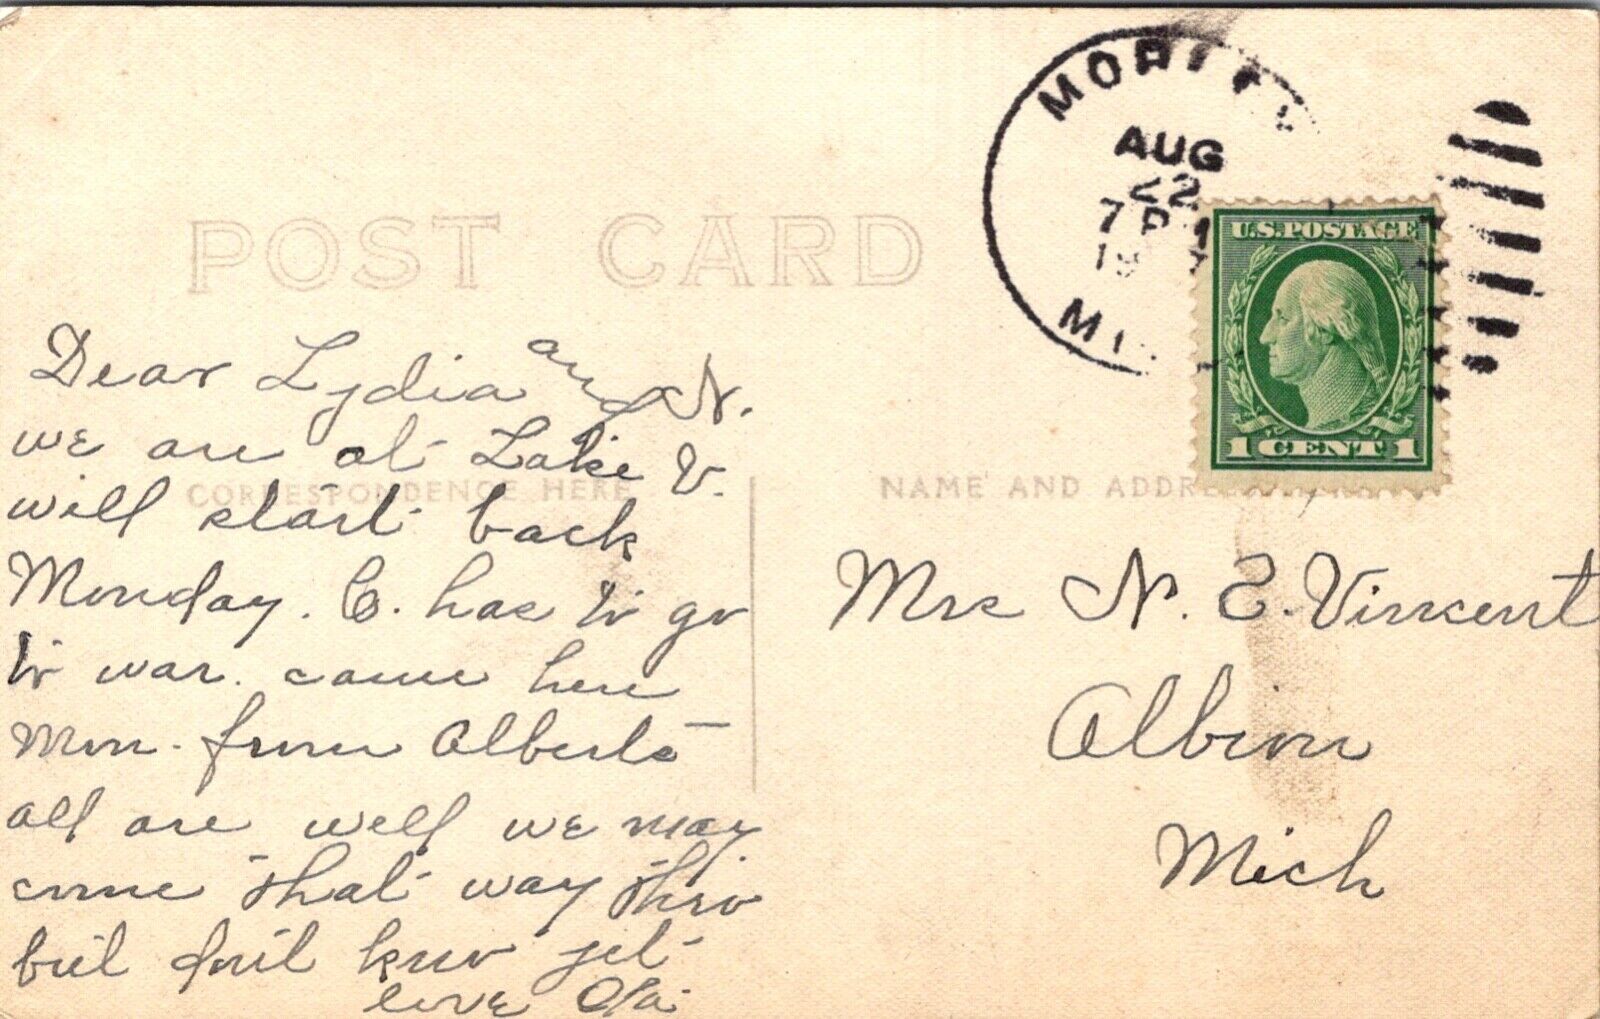 POST CARD
MOR
AUG
22
7 P
19
MI
U.S. POSTAGE
1 CENT 1
Dear Lydia and N.
we are at Lake V.
CORRESPONDENCE HERE
will start back
Monday. C. has to go
to war. came here
Mon. from Alberts
all are well we may
come that way thro
but don't know yet
love
NAME AND ADDRE
Mrs N. E. Vincent
Albion
Mich